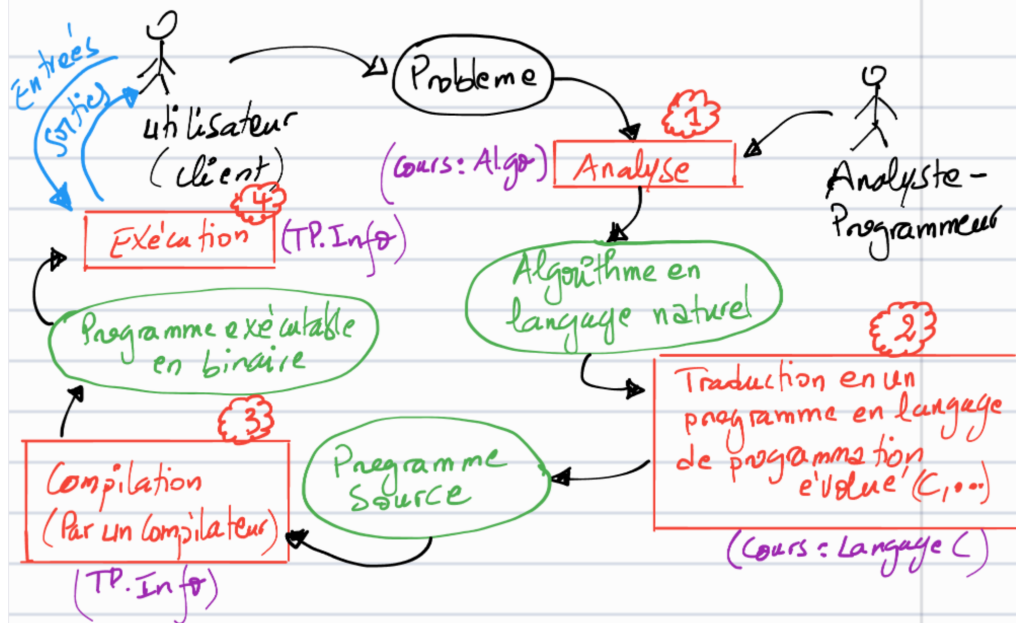 Entrées
Sorties
utilisateur
(client)
Probleme
1
(Cours : Algo)
Analyse
Analyste-
Programmeur
4
Exécution
(TP.Info)
Algorithme en
langage naturel
Programme exécutable
en binaire
2
Traduction en un
programme en langage
de programmation
évolué (C,...)
(Cours : Langage C)
3
Compilation
(Par un Compilateur)
(TP.Info)
Programme
Source